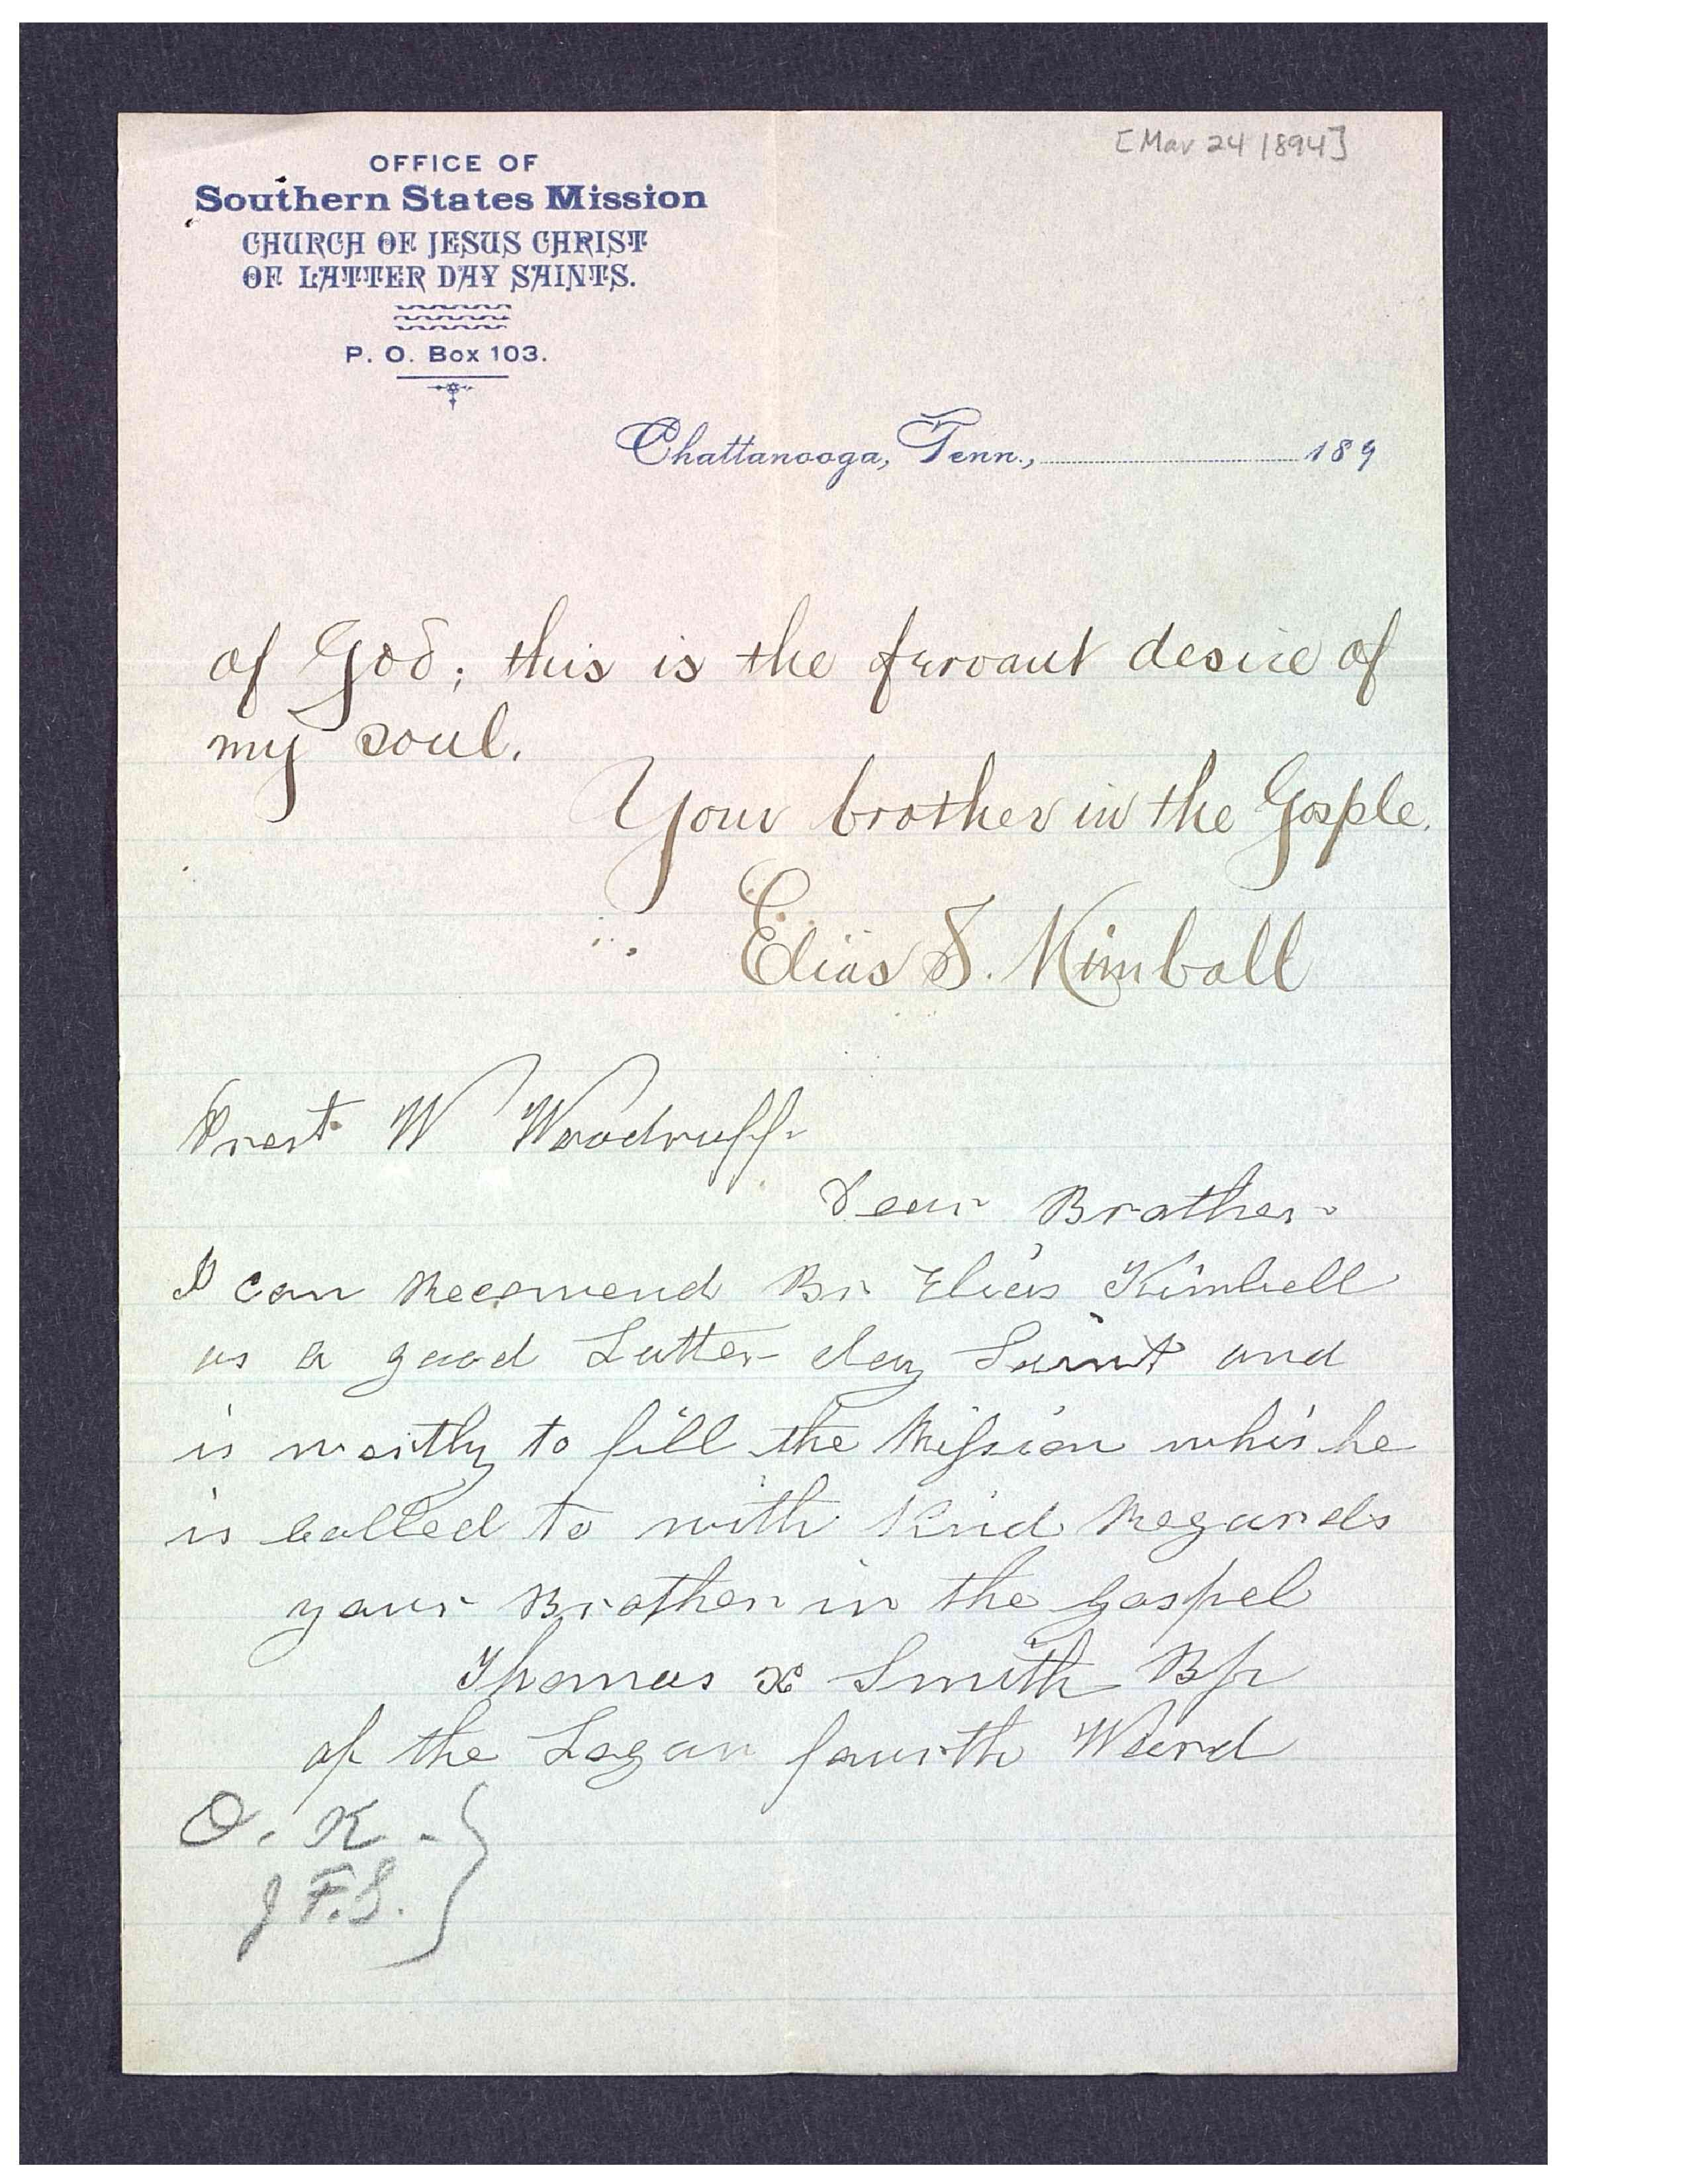 [Mar 24 1894]
OFFICE OF
Southern States Mission
CHURCH OF JESUS CHRIST
OF LATTER DAY SAINTS.
P. O. Box 103.
Chattanooga, Tenn., 189
of God; this is the fervant desire of
my soul.
Your brother in the Gosple.
Elias S. Kimball
Prest W Woodruff
Dear Brother
I can Recomend Br Elias Kimball
as a good Latter day Saint and
is worthy to fill the Mission whis he
is called to with Kind Regards
your Brother in the gospel
Thomas X Smith Bp
of the Logan fourth Ward
O. K.
J F. S.